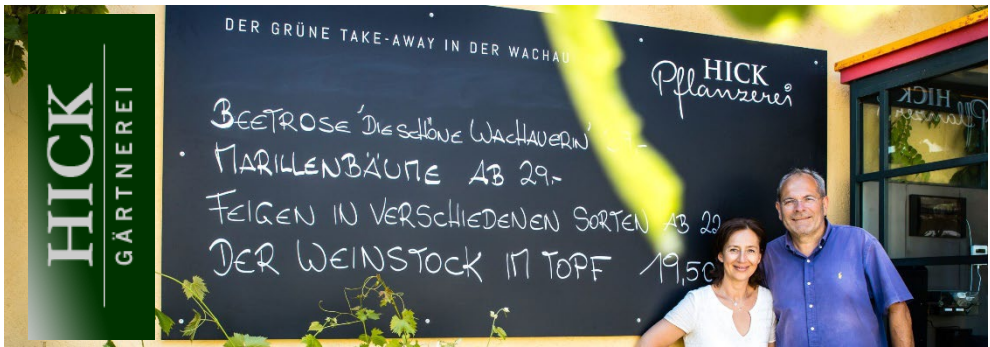 HICK
GÄRTNEREI
DER GRÜNE TAKE-AWAY IN DER WACHAU
HICK
Pflanzerei
BEETROSE 'DIE SCHÖNE WACHAUERIN'
MARILLENBÄUME AB 29,-
FEIGEN IN VERSCHIEDENEN SORTEN AB 22
DER WEINSTOCK IM TOPF 19,50
HICK
Pflanzerei